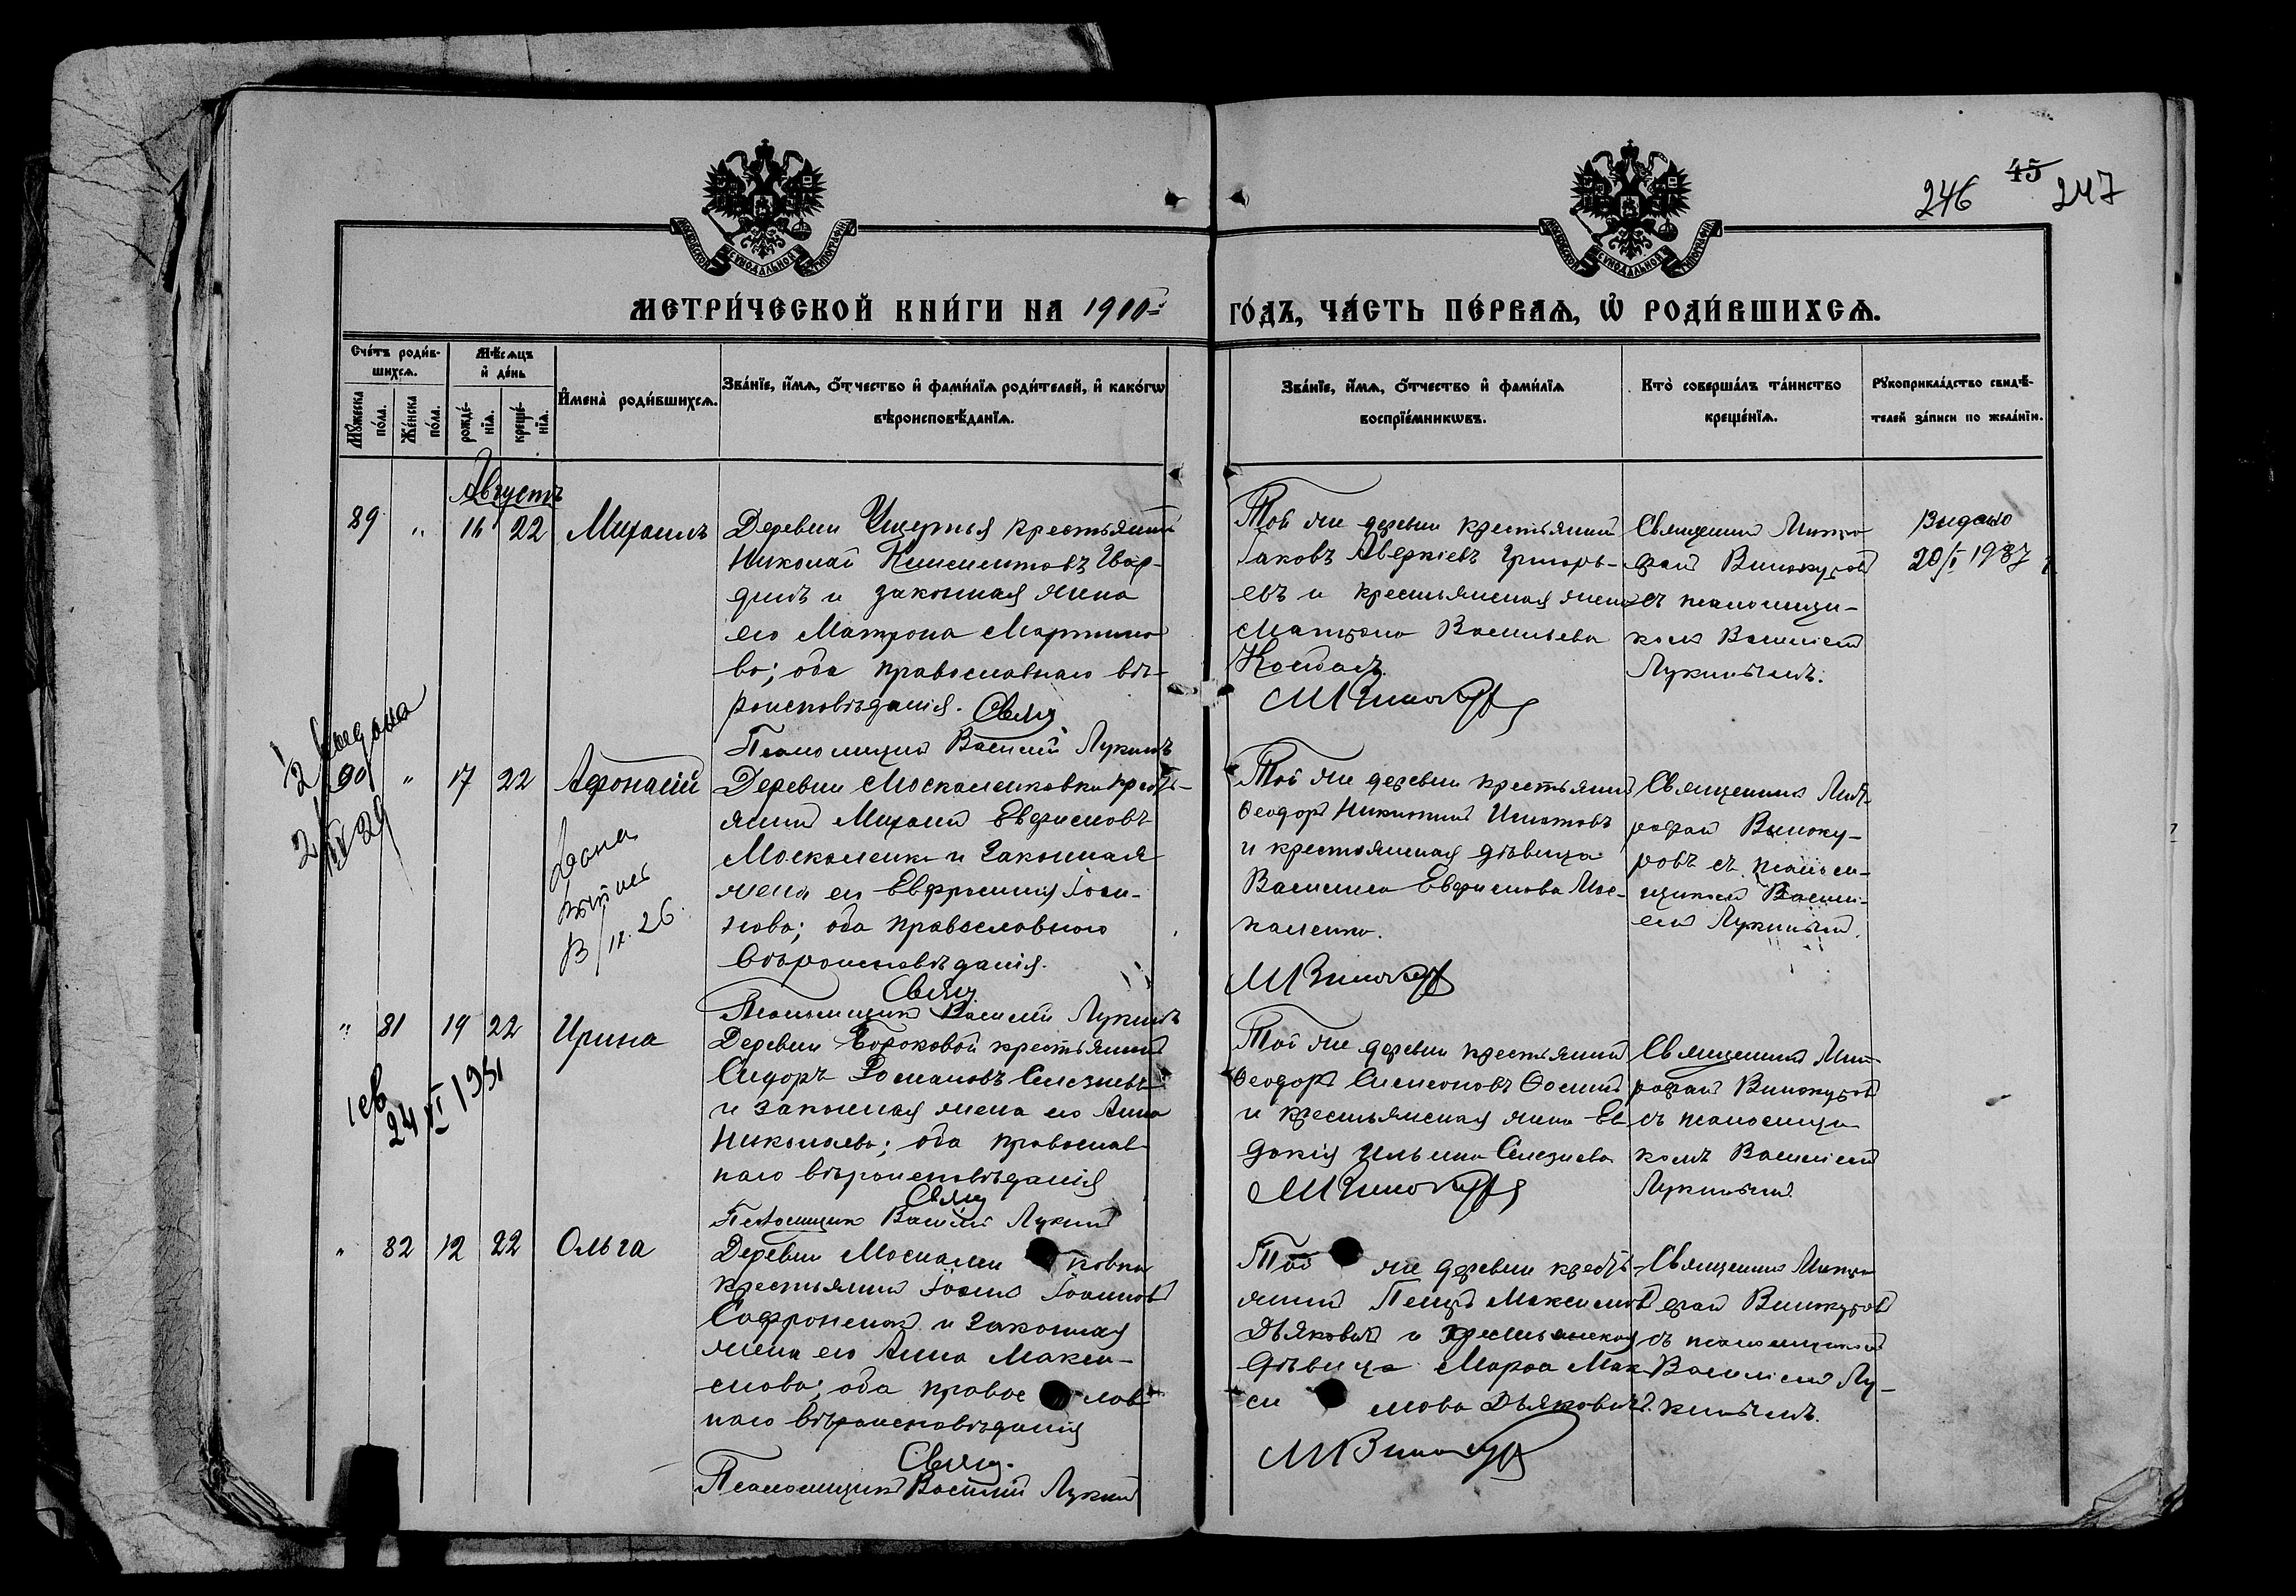 246 45 247
МЕТРИЧЕСКОЙ КНИГИ НА 1910 ГОДЪ, ЧАСТЬ ПЕРВАЯ, Ѡ РОДИВШИХСЯ.
Счетъ родившихся.
Мужеска пола.
Женска пола.
Мѣсяцъ и день
рожденія.
крещенія.
Имена родившихся.
Званіе, имя, отчество и фамилія родителей, и какогѡ
вѣроисповѣданія.
Званіе, имя, отчество и фамилія
воспріемникѡвъ.
Кто совершалъ таинство
крещенія.
Рукоприкладство свидѣ-
телей записи по желанію.
Августъ
89 " 16 22 Михаилъ
Деревни крестьянинъ
Николай Климентовъ
и законная жена
его Матрона Мартино
ва; оба православнаго вѣ-
роисповѣданія. Свящ.
Псаломщикъ Василій Лукинъ
Той же деревни крестьянинъ
Іаковъ Аверкіевъ Григорь-
евъ и крестьянская жена
Матрона Васильева
Священникъ Митро
фанъ Винокуровъ
съ псаломщи-
комъ Василіемъ
Лукинымъ.
Выдано
20/I 1937 г.
90 " 17 22 Афонасій
Деревни Москаленковки кресть-
янинъ Михаилъ Евфимовъ
Москаленко и законная
жена его Евфросинія Іоси-
фова; оба православнаго
вѣроисповѣданія.
Свящ.
Псаломщикъ Василій Лукинъ
Той же деревни крестьянинъ
Ѳеодоръ Никитинъ Игнатовъ
и крестьянская дѣвица
Василиса Евфимова Мос-
каленко.
Священникъ Мит-
рофанъ Виноку-
ровъ съ псалом-
щикомъ Васили-
емъ Лукинымъ.
" 81 19 22 Ирина
24 XI 1931
Деревни Бороковой крестьянинъ
Сидоръ Романовъ Селезневъ
и законная жена его Анна
Николаева; оба православ-
наго вѣроисповѣданія
Свящ
Псаломщикъ Василій Лукинъ
Той же деревни крестьянинъ
Ѳеодоръ Симеоновъ Ѳоминъ
и крестьянская жена Ев-
докія Ильина Селезнева
Священникъ Мит-
рофанъ Винокуровъ
съ псаломщи
комъ Василіемъ
Лукинымъ.
" 82 12 22 Ольга
Деревни Москаленковки
крестьянинъ Іосифъ Іоанновъ
Софроненко и законная
жена его Анна Макси-
мова; оба православ-
наго вѣроисповѣданія
Свящ.
Псаломщикъ Василій Лукинъ
Той же деревни кресть-
янинъ Петръ Максимовъ
Дьяковичъ и крестьянская
дѣвица Марѳа Мак
симова Дьяковичъ.
Священникъ Митро
фанъ Винокуровъ
съ псаломщикомъ
Василіемъ Лу-
кинымъ.